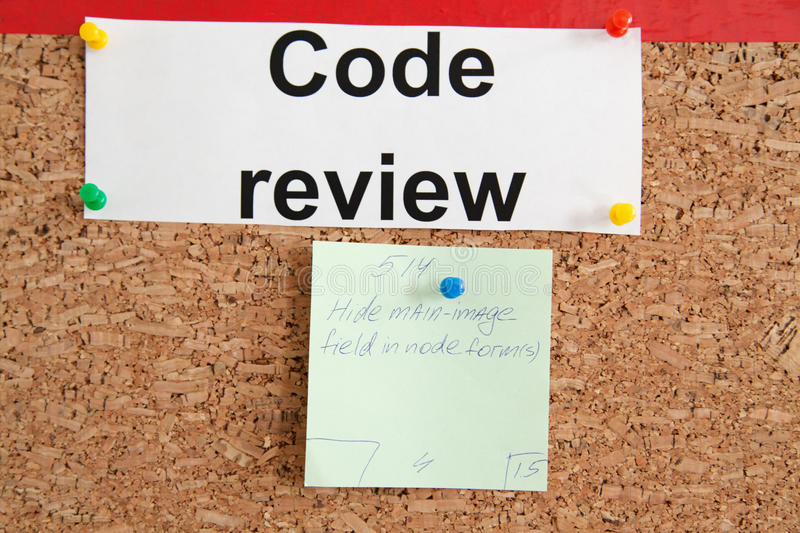 Code
review
514
Hide main-image
field in node form(s)
4
1.5